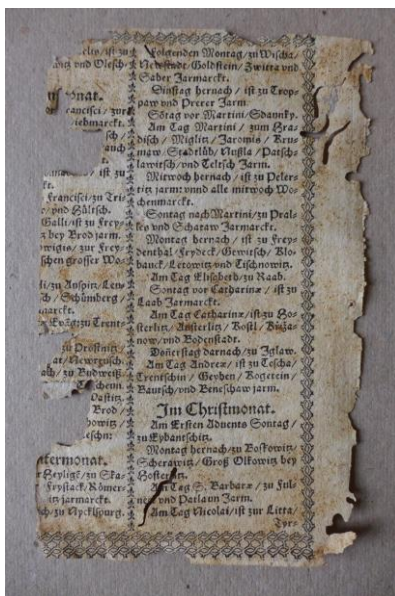 elin/ist zu
witz vnd Olesch-
Monat.
rancisci/ zur
iebmarckt.
sch /
auch
t.
ist zu
Francisci/ zu Tri-
vnd Hültsch.
Galli/ist zu Frey-
z bey Brod jarm.
wigis/ zur Frey-
schen grosser Wo-
li/zu Auspitz/ Len-
h/ Schümberg /
marckt.
zu Trent-
zu Proßnitz/
at/
ch/ zu Budweiß
Tscheun.
Datitz.
Brod /
howitz /
eschin:
ntermonat.
Heylige/ zu Ska-
Frystack/ Römer-
itz jarmarckt.
ch/zu Nycklspurg.
Folgenden Montag/zu Wischa/
Newstadt/ Goldstein/ Zwitta vnd
Saber Jarmarckt.
Dinstag hernach / ist zu Trop-
paw vnd Prerer Jarm.
Sötag vor Martini/Sdaunky.
Am Tag Martini / zum Hra-
disch / Miglitz/ Jaromis / Kru-
maw/ Stadtlüb/ Nußla / Patsch-
lawitsch/ vnd Teltsch Jarm.
Mitwoch hernach / ist zu Peter-
titz jarm: vnnd alle mitwoch Wo-
chenmarckt.
Sontag nach Martini/ zu Pral-
les vnd Schataw Jarmarckt.
Montag hernach / ist zu Frey-
denthal /Frydeck/ Gewitsch/ Klo-
bauck/ Letowitz vnd Tischnowitz.
Am Tag Elisabeth/ zu Raab.
Sontag vor Catharinæ / ist zu
Laab Jarmarckt.
Am Tag Catharinæ/ist zu Ho-
sterlitz/ Austerlitz / Kostl/ Bůža-
now/ vnd Bodenstadt.
Donerstag darnach/ zu Jglaw.
Am Tag Andreæ/ ist zu Tescha/
Trentschin / Geyben / Kogetein /
Bautsch/vnd Beneschaw jarm.
Jm Christmonat.
Am Ersten Aduents Sontag /
zu Eybantschitz.
Montag hernach/zu Boskowitz/
Scherawitz/ Groß Olkowitz bey
Hosterlitz.
Am Tag S. Barbaræ / zu Ful-
neck vnd Patlaun Jarm.
Am Tag Nicolai/ist zur Litta/
Tyr-